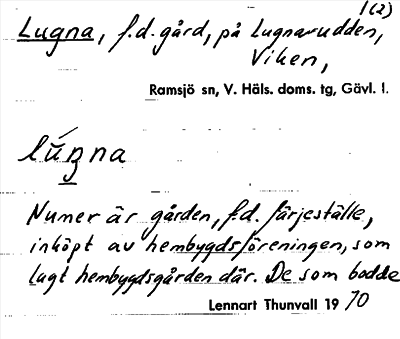 1(2)
Lugna, f.d. gård, på Lugnarudden,
Viken,
Ramsjö sn, V. Häls. doms. tg, Gävl. l.
Numer är gården, f.d. färjeställe,
inköpt av hembygdsföreningen, som
lagt hembygdsgården där. De som bodde
Lennart Thunvall 1970